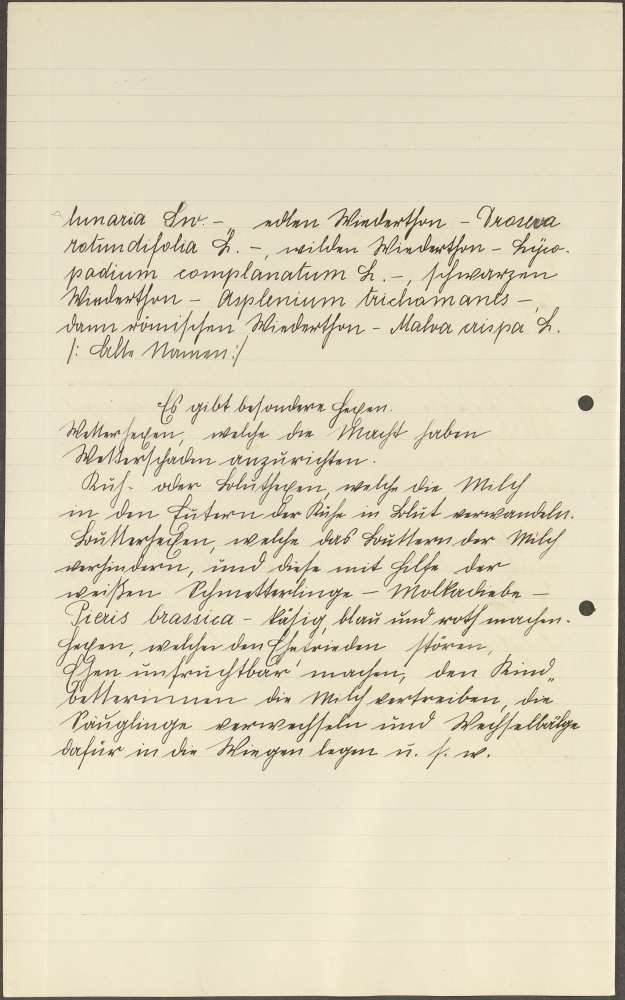 lunaria Sw. -, edlen Wiederthon - Drosera
rotundifolia L. -, wilden Wiederthon - Lyco-
podium complanatum L. -, schwarzen
Wiederthon - Asplenium trichomanes -,
dann römischen Wiederthon - Malva crispa L.
/: Alte Namen :/
Es gibt besondere Hexen.
Wetterhexen, welche die Macht haben
Wetterschaden anzurichten.
Kuh- oder Bluthexen, welche die Milch
in den Eutern der Kühe in Blut verwandeln.
Butterhexen, welche das Buttern der Milch
verhindern, und diese mit Hilfe der
weißen Schmetterlinge - Molkadiebe -
Pieris brassica - käsig, blau und roth machen.
Hexen, welche den Ehefrieden stören,
Ehen unfruchtbar machen, den Kind„
betterinnen die Milch vertreiben, die
Säuglinge verwechseln und Wechselbälge
dafür in die Wiegen legen u. s. w.